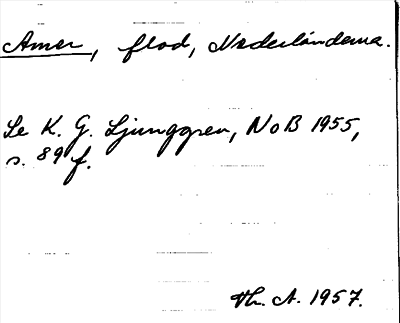 Amer, flod, Nederländerna.
Se K. G. Ljunggren, NoB 1955,
s. 89 f.
Th. A. 1957.